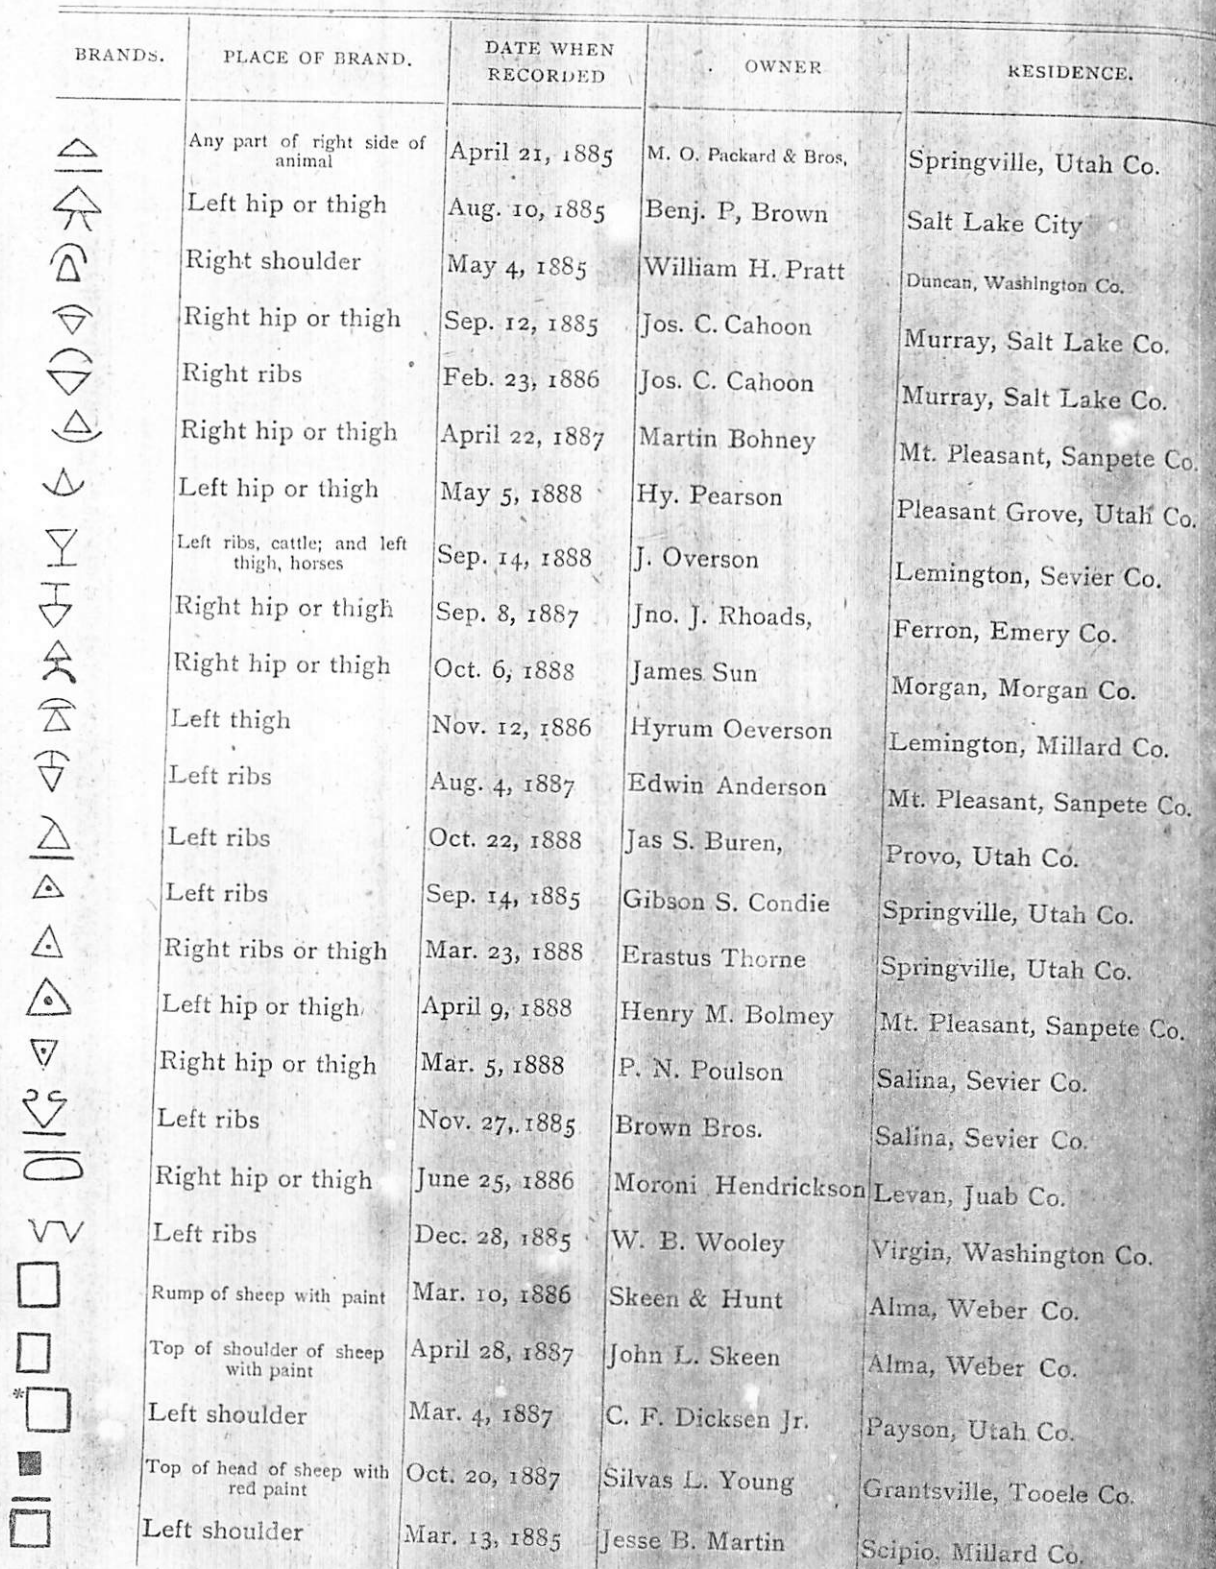 BRANDS. PLACE OF BRAND. DATE WHEN RECORDED OWNER RESIDENCE.
Any part of right side of animal April 21, 1885 M. O. Packard & Bros, Springville, Utah Co.
Left hip or thigh Aug. 10, 1885 Benj. P, Brown Salt Lake City
Right shoulder May 4, 1885 William H. Pratt Duncan, Washington Co.
Right hip or thigh Sep. 12, 1885 Jos. C. Cahoon Murray, Salt Lake Co.
Right ribs Feb. 23, 1886 Jos. C. Cahoon Murray, Salt Lake Co.
Right hip or thigh April 22, 1887 Martin Bohney Mt. Pleasant, Sanpete Co.
Left hip or thigh May 5, 1888 Hy. Pearson Pleasant Grove, Utah Co.
Left ribs, cattle; and left thigh, horses Sep. 14, 1888 J. Overson Lemington, Sevier Co.
Right hip or thigh Sep. 8, 1887 Jno. J. Rhoads, Ferron, Emery Co.
Right hip or thigh Oct. 6, 1888 James Sun Morgan, Morgan Co.
Left thigh Nov. 12, 1886 Hyrum Oeverson Lemington, Millard Co.
Left ribs Aug. 4, 1887 Edwin Anderson Mt. Pleasant, Sanpete Co.
Left ribs Oct. 22, 1888 Jas S. Buren, Provo, Utah Co.
Left ribs Sep. 14, 1885 Gibson S. Condie Springville, Utah Co.
Right ribs or thigh Mar. 23, 1888 Erastus Thorne Springville, Utah Co.
Left hip or thigh April 9, 1888 Henry M. Bolmey Mt. Pleasant, Sanpete Co.
Right hip or thigh Mar. 5, 1888 P. N. Poulson Salina, Sevier Co.
Left ribs Nov. 27, 1885 Brown Bros. Salina, Sevier Co.
Right hip or thigh June 25, 1886 Moroni Hendrickson Levan, Juab Co.
Left ribs Dec. 28, 1885 W. B. Wooley Virgin, Washington Co.
Rump of sheep with paint Mar. 10, 1886 Skeen & Hunt Alma, Weber Co.
Top of shoulder of sheep with paint April 28, 1887 John L. Skeen Alma, Weber Co.
* Left shoulder Mar. 4, 1887 C. F. Dicksen Jr. Payson, Utah Co.
Top of head of sheep with red paint Oct. 20, 1887 Silvas L. Young Grantsville, Tooele Co.
Left shoulder Mar. 13, 1885 Jesse B. Martin Scipio, Millard Co.